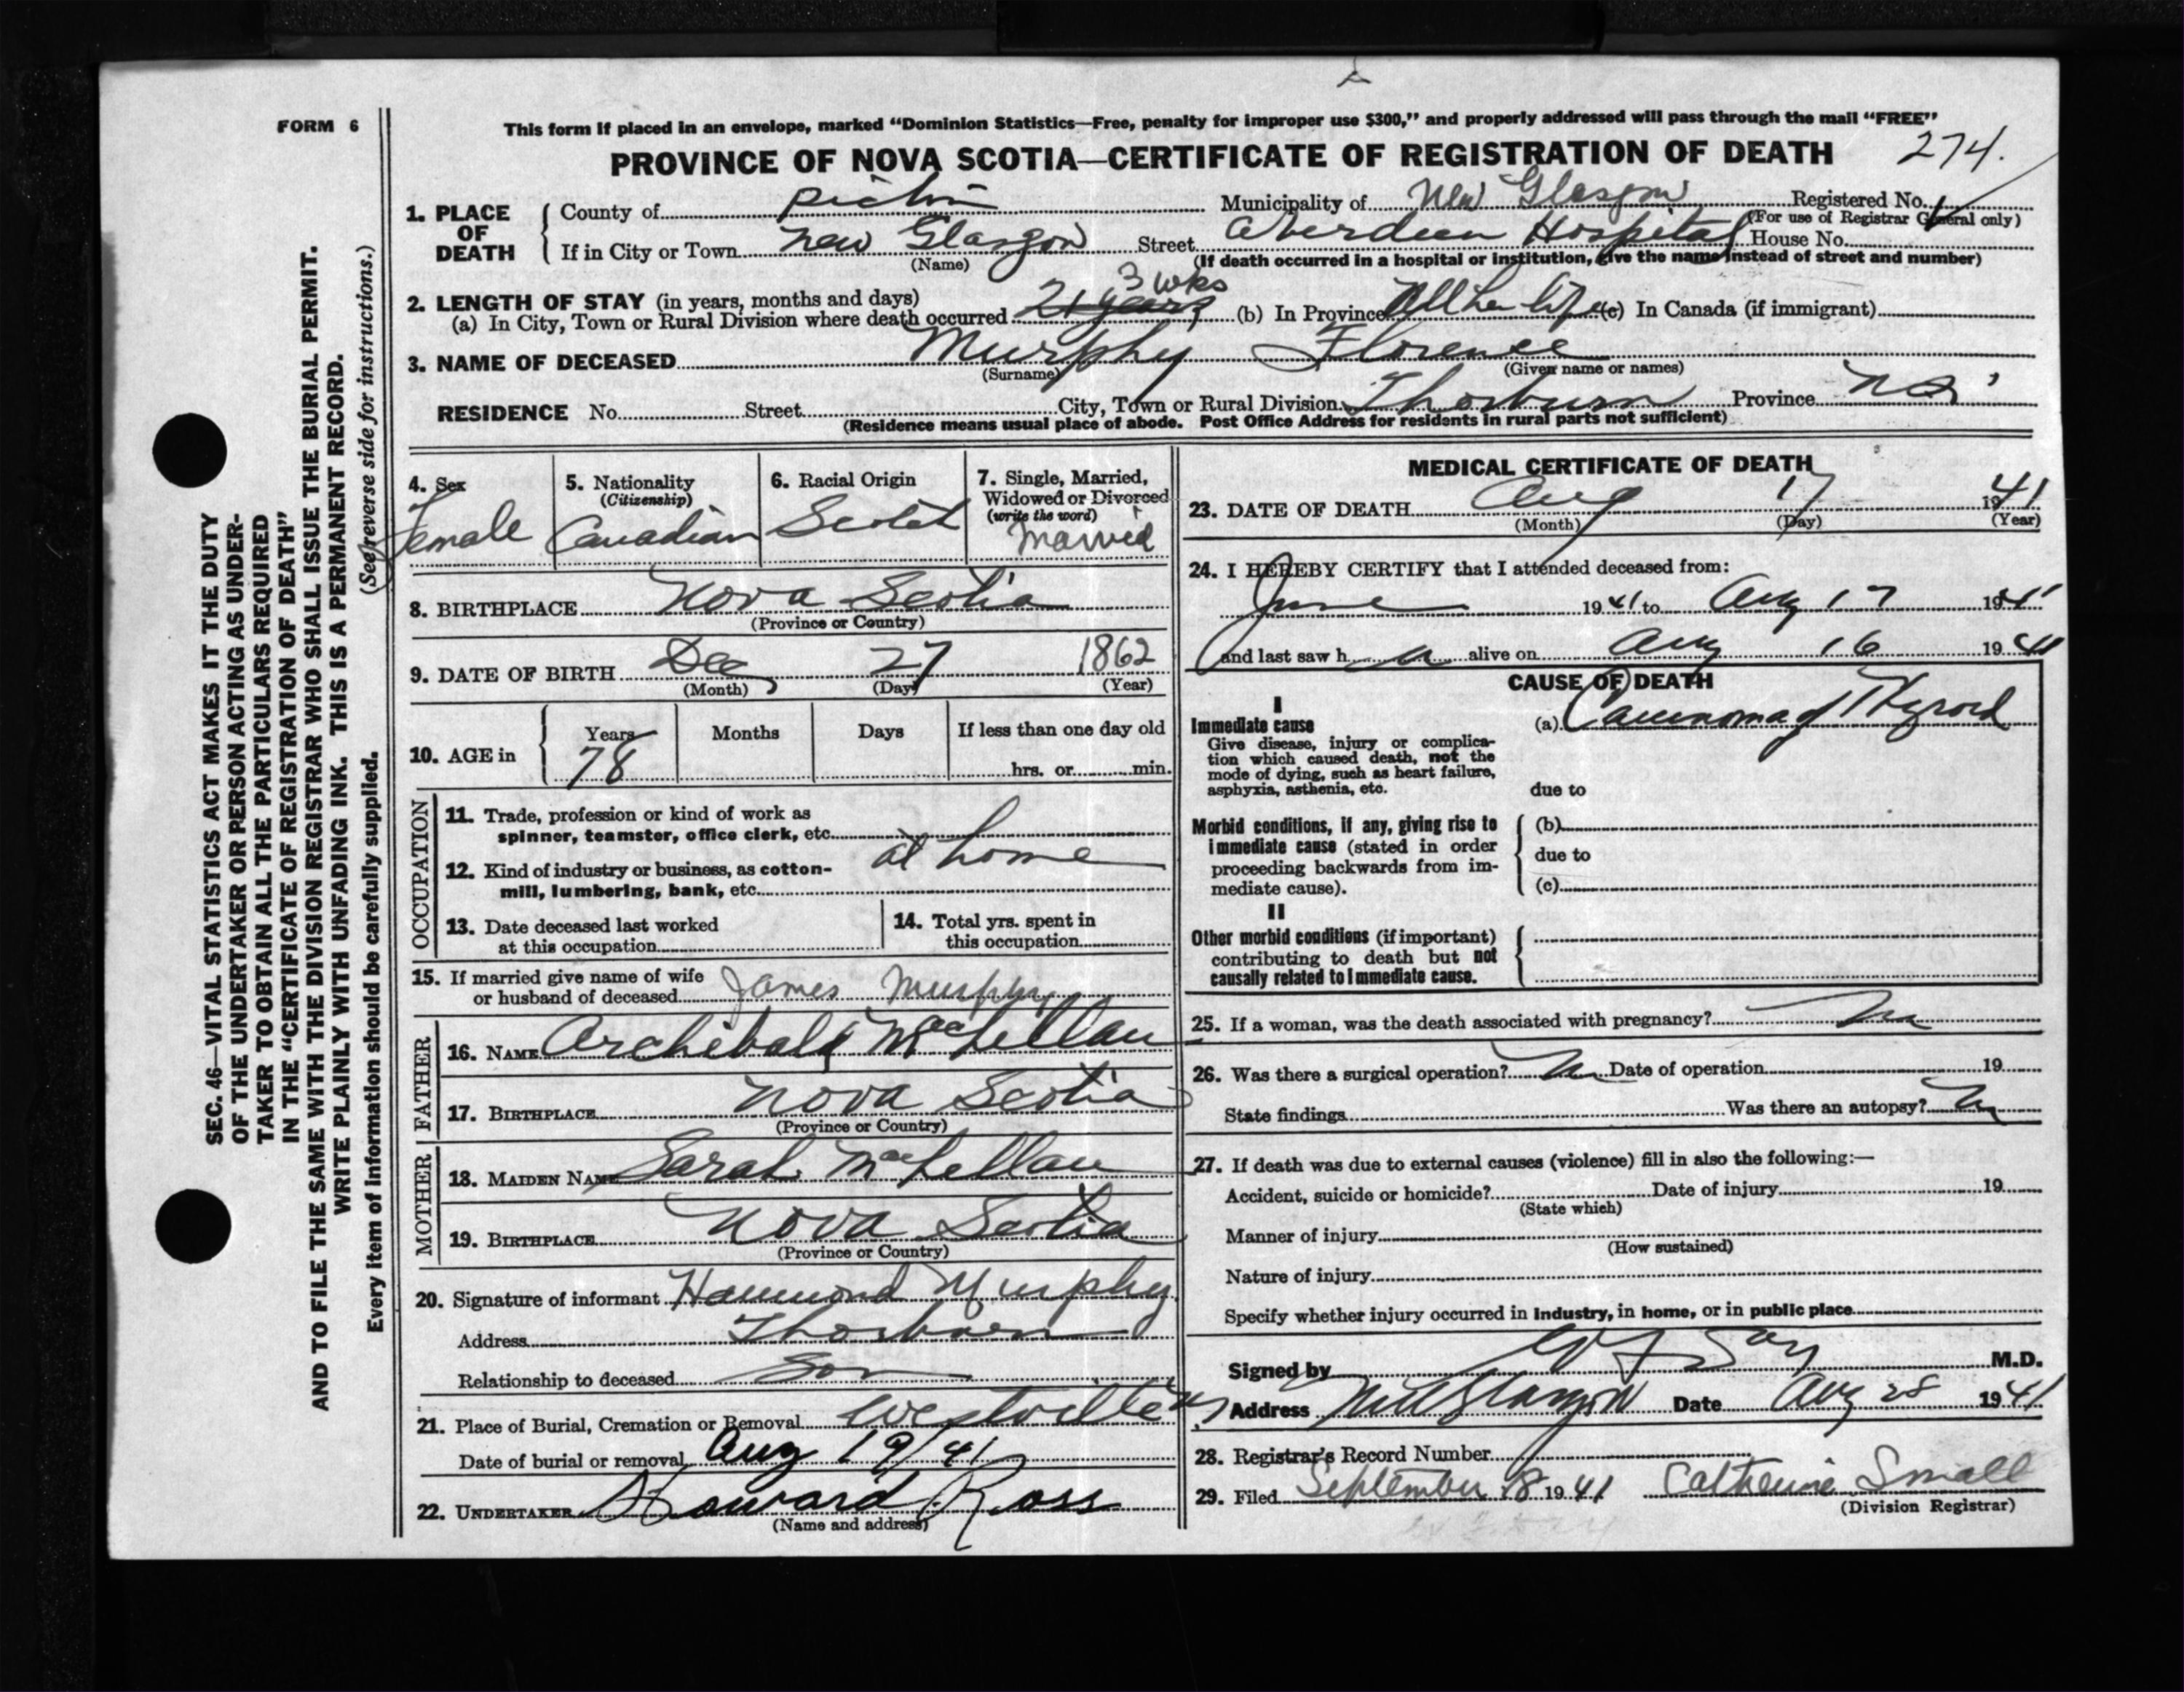 FORM 6
This form if placed in an envelope, marked "Dominion Statistics—Free, penalty for improper use $300," and properly addressed will pass through the mail "FREE"
PROVINCE OF NOVA SCOTIA—CERTIFICATE OF REGISTRATION OF DEATH 274.
1. PLACE OF DEATH
County of Pictou Municipality of New Glasgow Registered No.
(For use of Registrar General only)
If in City or Town New Glasgow Street Aberdeen Hospital House No.
(Name) (If death occurred in a hospital or institution, give the name instead of street and number)
3 wks
2. LENGTH OF STAY (in years, months and days)
(a) In City, Town or Rural Division where death occurred 21 years (b) In Province All her life (c) In Canada (if immigrant)
3. NAME OF DECEASED Murphy Florence
(Surname) (Given name or names)
RESIDENCE No. Street City, Town or Rural Division Thorburn Province N.S.
(Residence means usual place of abode. Post Office Address for residents in rural parts not sufficient)
SEC. 46—VITAL STATISTICS ACT MAKES IT THE DUTY
OF THE UNDERTAKER OR PERSON ACTING AS UNDER-
TAKER TO OBTAIN ALL THE PARTICULARS REQUIRED
IN THE "CERTIFICATE OF REGISTRATION OF DEATH"
AND TO FILE THE SAME WITH THE DIVISION REGISTRAR WHO SHALL ISSUE THE BURIAL PERMIT.
WRITE PLAINLY WITH UNFADING INK. THIS IS A PERMANENT RECORD.
Every item of information should be carefully supplied. (See reverse side for instructions.)
4. Sex Female
5. Nationality
(Citizenship)
Canadian
6. Racial Origin
Scotch
7. Single, Married,
Widowed or Divorced
(write the word)
Married
8. BIRTHPLACE Nova Scotia
(Province or Country)
9. DATE OF BIRTH Dec 27 1862
(Month) (Day) (Year)
10. AGE in Years Months Days If less than one day old
78 hrs. or min.
OCCUPATION
11. Trade, profession or kind of work as
spinner, teamster, office clerk, etc.
at home
12. Kind of industry or business, as cotton-
mill, lumbering, bank, etc.
13. Date deceased last worked
at this occupation
14. Total yrs. spent in
this occupation
15. If married give name of wife
or husband of deceased James Murphy
FATHER
16. NAME Archibald MacLellan
17. BIRTHPLACE Nova Scotia
(Province or Country)
MOTHER
18. MAIDEN NAME Sarah MacLellan
19. BIRTHPLACE Nova Scotia
(Province or Country)
20. Signature of informant Hammond Murphy
Address Thorburn
Relationship to deceased Son
21. Place of Burial, Cremation or Removal Westville NS
Date of burial or removal Aug 19/41
22. UNDERTAKER Howard Ross
(Name and address)
MEDICAL CERTIFICATE OF DEATH
23. DATE OF DEATH Aug 17 1941
(Month) (Day) (Year)
24. I HEREBY CERTIFY that I attended deceased from:
June 1941 to Aug 17 1941
and last saw h er alive on Aug 16 1941
CAUSE OF DEATH
I
Immediate cause (a) Carcinoma of Thyroid
Give disease, injury or complica-
tion which caused death, not the
mode of dying, such as heart failure,
asphyxia, asthenia, etc. due to
Morbid conditions, if any, giving rise to (b)
immediate cause (stated in order due to
proceeding backwards from im-
mediate cause). (c)
II
Other morbid conditions (if important)
contributing to death but not
causally related to immediate cause.
25. If a woman, was the death associated with pregnancy? No
26. Was there a surgical operation? No Date of operation 19
State findings Was there an autopsy? No
27. If death was due to external causes (violence) fill in also the following:—
Accident, suicide or homicide? Date of injury 19
(State which)
Manner of injury
(How sustained)
Nature of injury
Specify whether injury occurred in industry, in home, or in public place
Signed by M.D.
Address New Glasgow Date Aug 28 1941
28. Registrar's Record Number
29. Filed September 18 1941 Catherine Small
(Division Registrar)